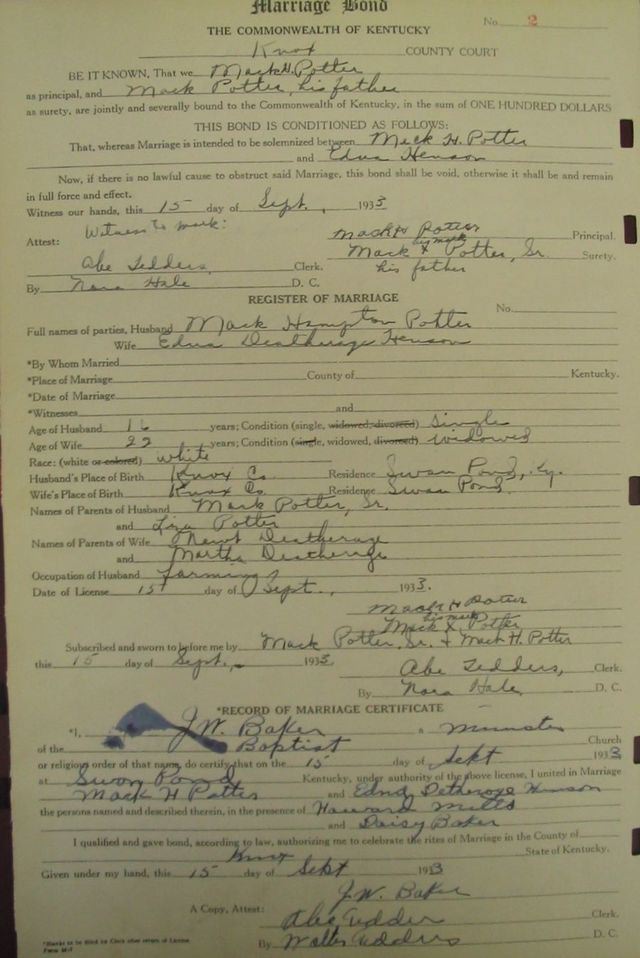 Marriage Bond
No. 2
THE COMMONWEALTH OF KENTUCKY
Knox COUNTY COURT
BE IT KNOWN, That we Mack H. Potter
as principal, and Mack Potter, his father
as surety, are jointly and severally bound to the Commonwealth of Kentucky, in the sum of ONE HUNDRED DOLLARS
THIS BOND IS CONDITIONED AS FOLLOWS:
That, whereas Marriage is intended to be solemnized between Mack H. Potter
and Edna Henson
Now, if there is no lawful cause to obstruct said Marriage, this bond shall be void, otherwise it shall be and remain
in full force and effect.
Witness our hands, this 15 day of Sept., 1933
Witness to mark:
Mack H Potter Principal.
Attest: his mark
Mack X Potter, Sr. Surety.
Abe Tedders, Clerk. his father
By Nora Hale D. C.
REGISTER OF MARRIAGE
No.
Full names of parties, Husband Mack Hampton Potter
Wife Edna Deatherage Henson
*By Whom Married
*Place of Marriage County of Kentucky.
*Date of Marriage
*Witnesses and
Age of Husband 16 years; Condition (single, widowed, divorced) Single
Age of Wife 22 years; Condition (single, widowed, divorced) widowed
Race: (white or colored) white
Husband's Place of Birth Knox Co. Residence Swan Pond, Ky.
Wife's Place of Birth Knox Co Residence Swan Pond.
Names of Parents of Husband Mark Potter, Sr.
and Liza Potter
Names of Parents of Wife Newt Deatherage
and Martha Deatherage
Occupation of Husband Farming
Date of License 15 day of Sept., 1933.
Mack H Potter
his mark
Mack X Potter
Subscribed and sworn to before me by Mack Potter, Sr. & Mack H. Potter
this 15 day of Sept., 1933
Abe Tedders, Clerk.
By Nora Hale, D. C.
*RECORD OF MARRIAGE CERTIFICATE
*I, J.W. Baker a Minister
of the Baptist Church
or religious order of that name, do certify that on the 15 day of Sept 1933
at Swon Pond Kentucky, under authority of the above license, I united in Marriage
Mack H Potter and Edna Henson
the persons named and described therein, in the presence of Howard Mills
and Daisy Baker
I qualified and gave bond, according to law, authorizing me to celebrate the rites of Marriage in the County of
Knox State of Kentucky.
Given under my hand, this 15 day of Sept 1933
J.W. Baker
A Copy, Attest: Abe Tedders Clerk.
By Walter Tedders D. C.
*Blanks to be filled by Clerk after return of License